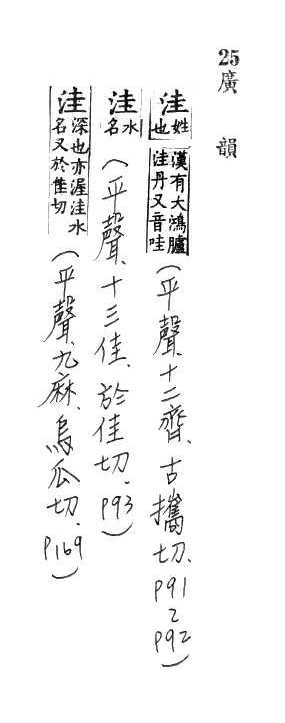 25廣韻
洼姓也漢有大鴻臚洼丹又音哇(平聲、十二齊、古攜切、P91~P92)
洼水名(平聲、十三佳、於佳切、P93)
洼深也亦渥洼水名又於佳切(平聲、九麻、烏瓜切、P169)